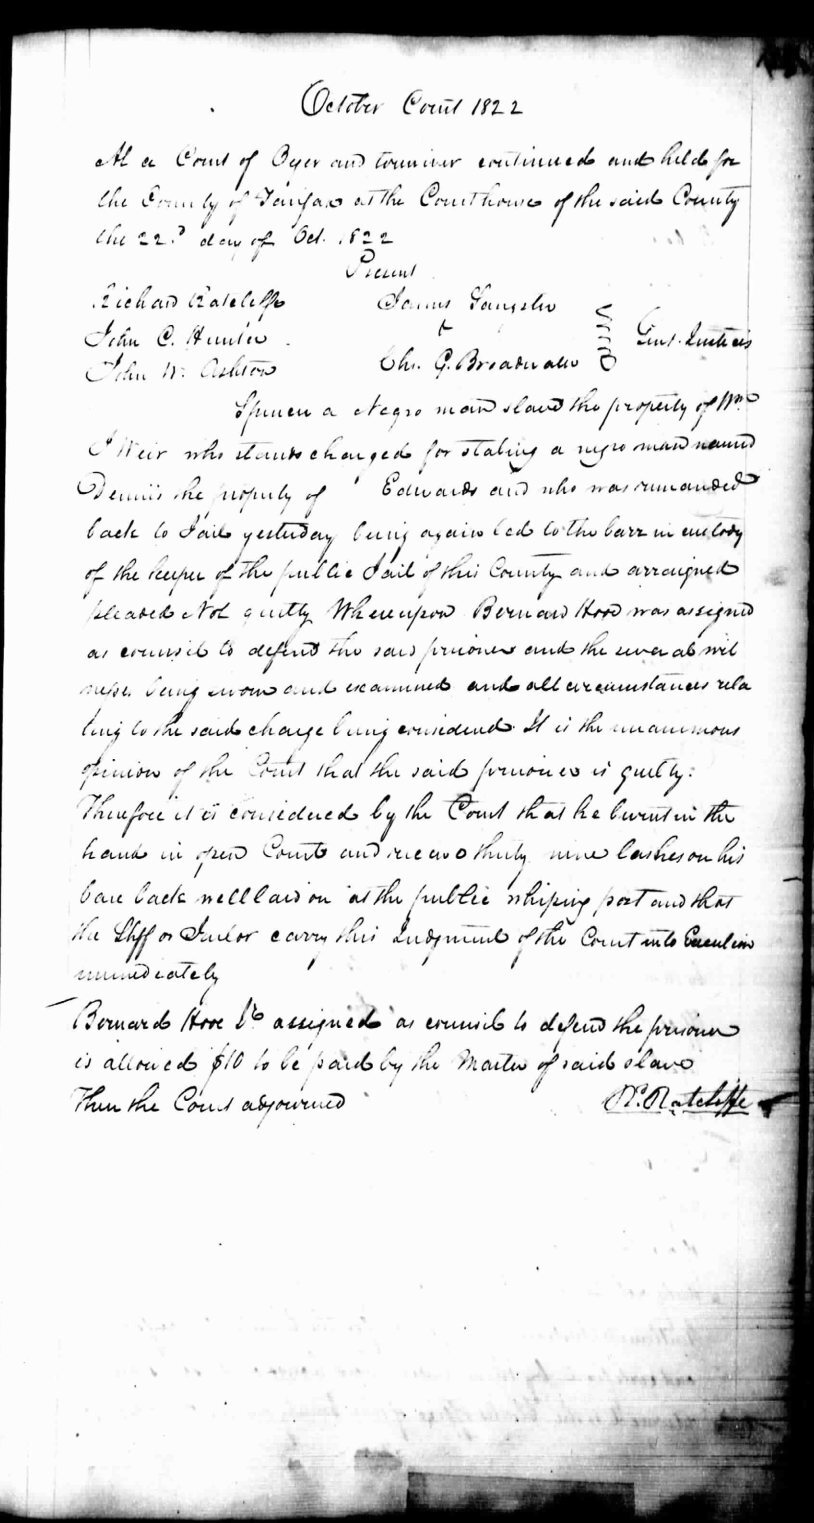 October Court 1822
At a Court of Oyer and terminer continued and held for
the County of Fairfax at the Courthouse of the said County
the 22d day of Oct. 1822
Present
Richard Ratcliffe James Sangster
John C. Hunter &
John W. Ashton Chs. G. Broadwater Gent. Justices
Spencer a Negro man slave the property of Wm
J Weir who stands charged for stabing a negro man named
Dennis the property of Edwards and who was remanded
back to Jail yesterday being again led to the barr in custody
of the keeper of the public Jail of this County and arraigned
pleaded Not guilty Whereupon Bernard Hooe was assigned
as counsil to defend the said prisoner and the several wit
nesses being sworn and examined and all circumstances rela
ting to the said charge being considered It is the unanimous
opinion of the Court that the said prisoner is guilty:
Therefore it is considered by the Court that he burnt in the
hand in open Court and receive thirty nine lashes on his
bare back well laid on at the public whiping post and that
the Shff or Jailor carry this Judgment of the Court into Execution
immediately
Bernard Hooe Jr. assigned as counsil to defend the prisoner
is allowed $10 to be paid by the Master of said slave
Then the Court adjourned Rd. Ratcliffe